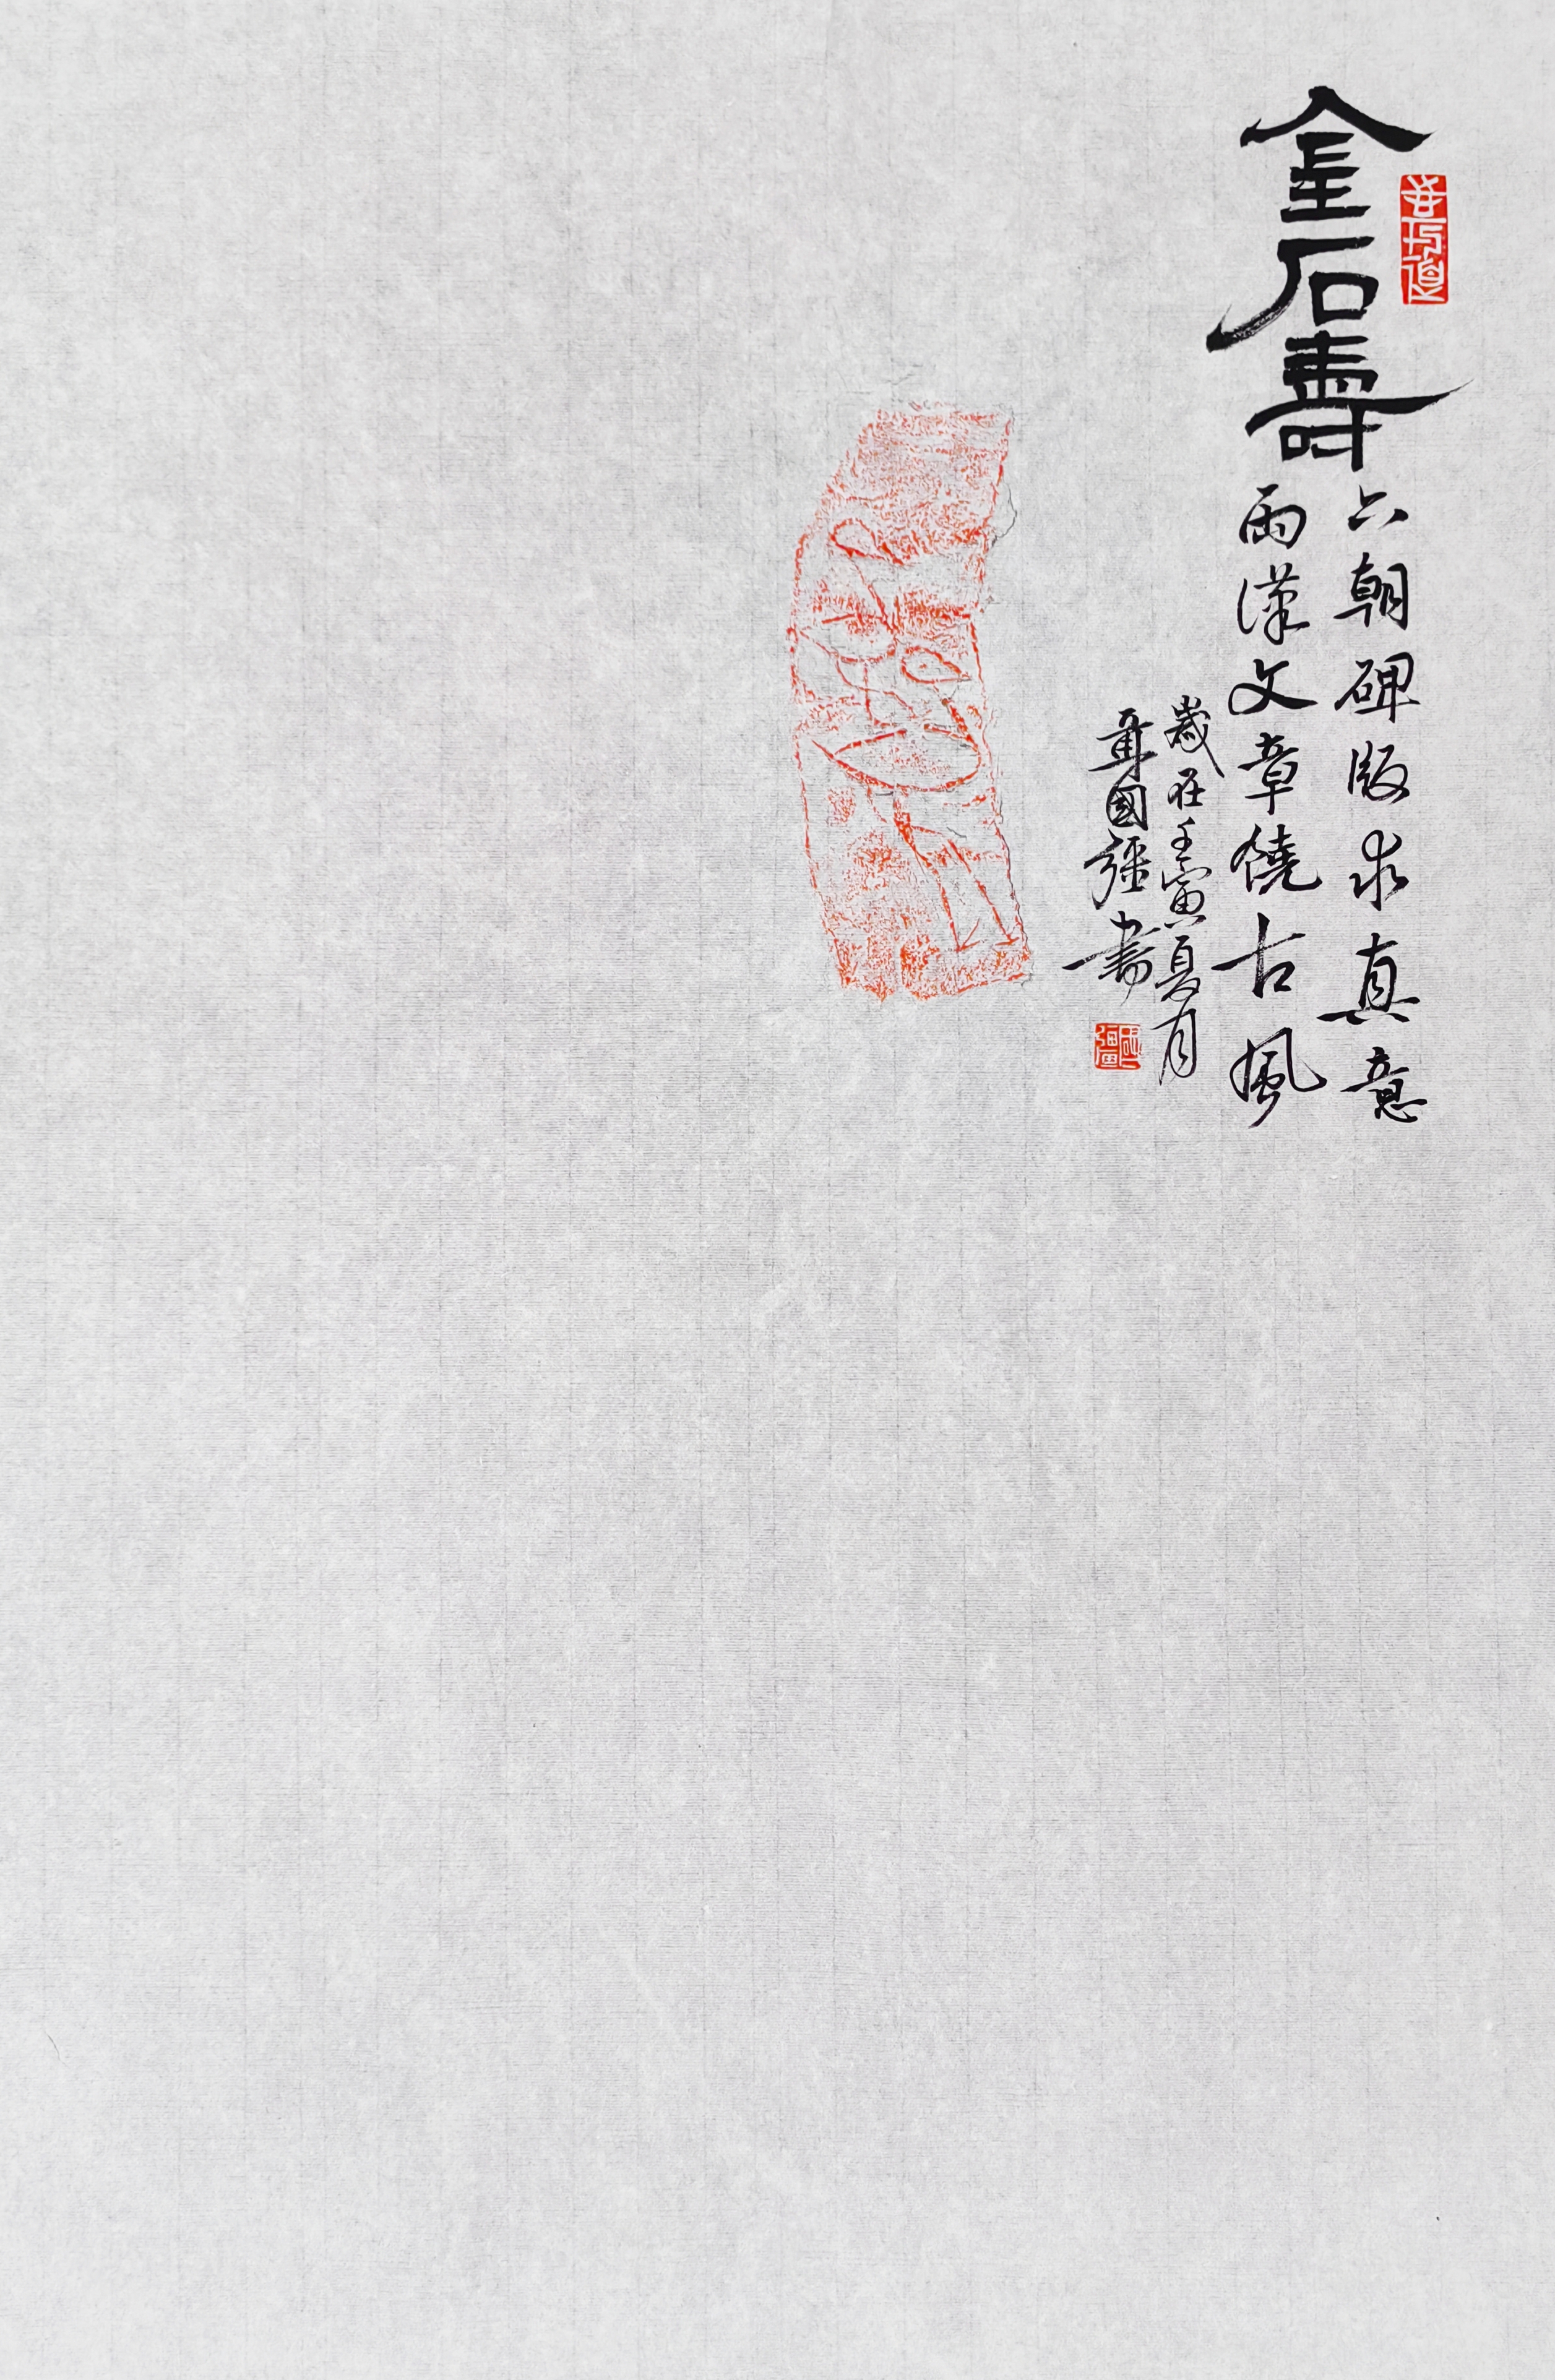 金石壽
六朝碑版求真意
兩漢文章饒古風
歲在壬寅夏月
國彊書